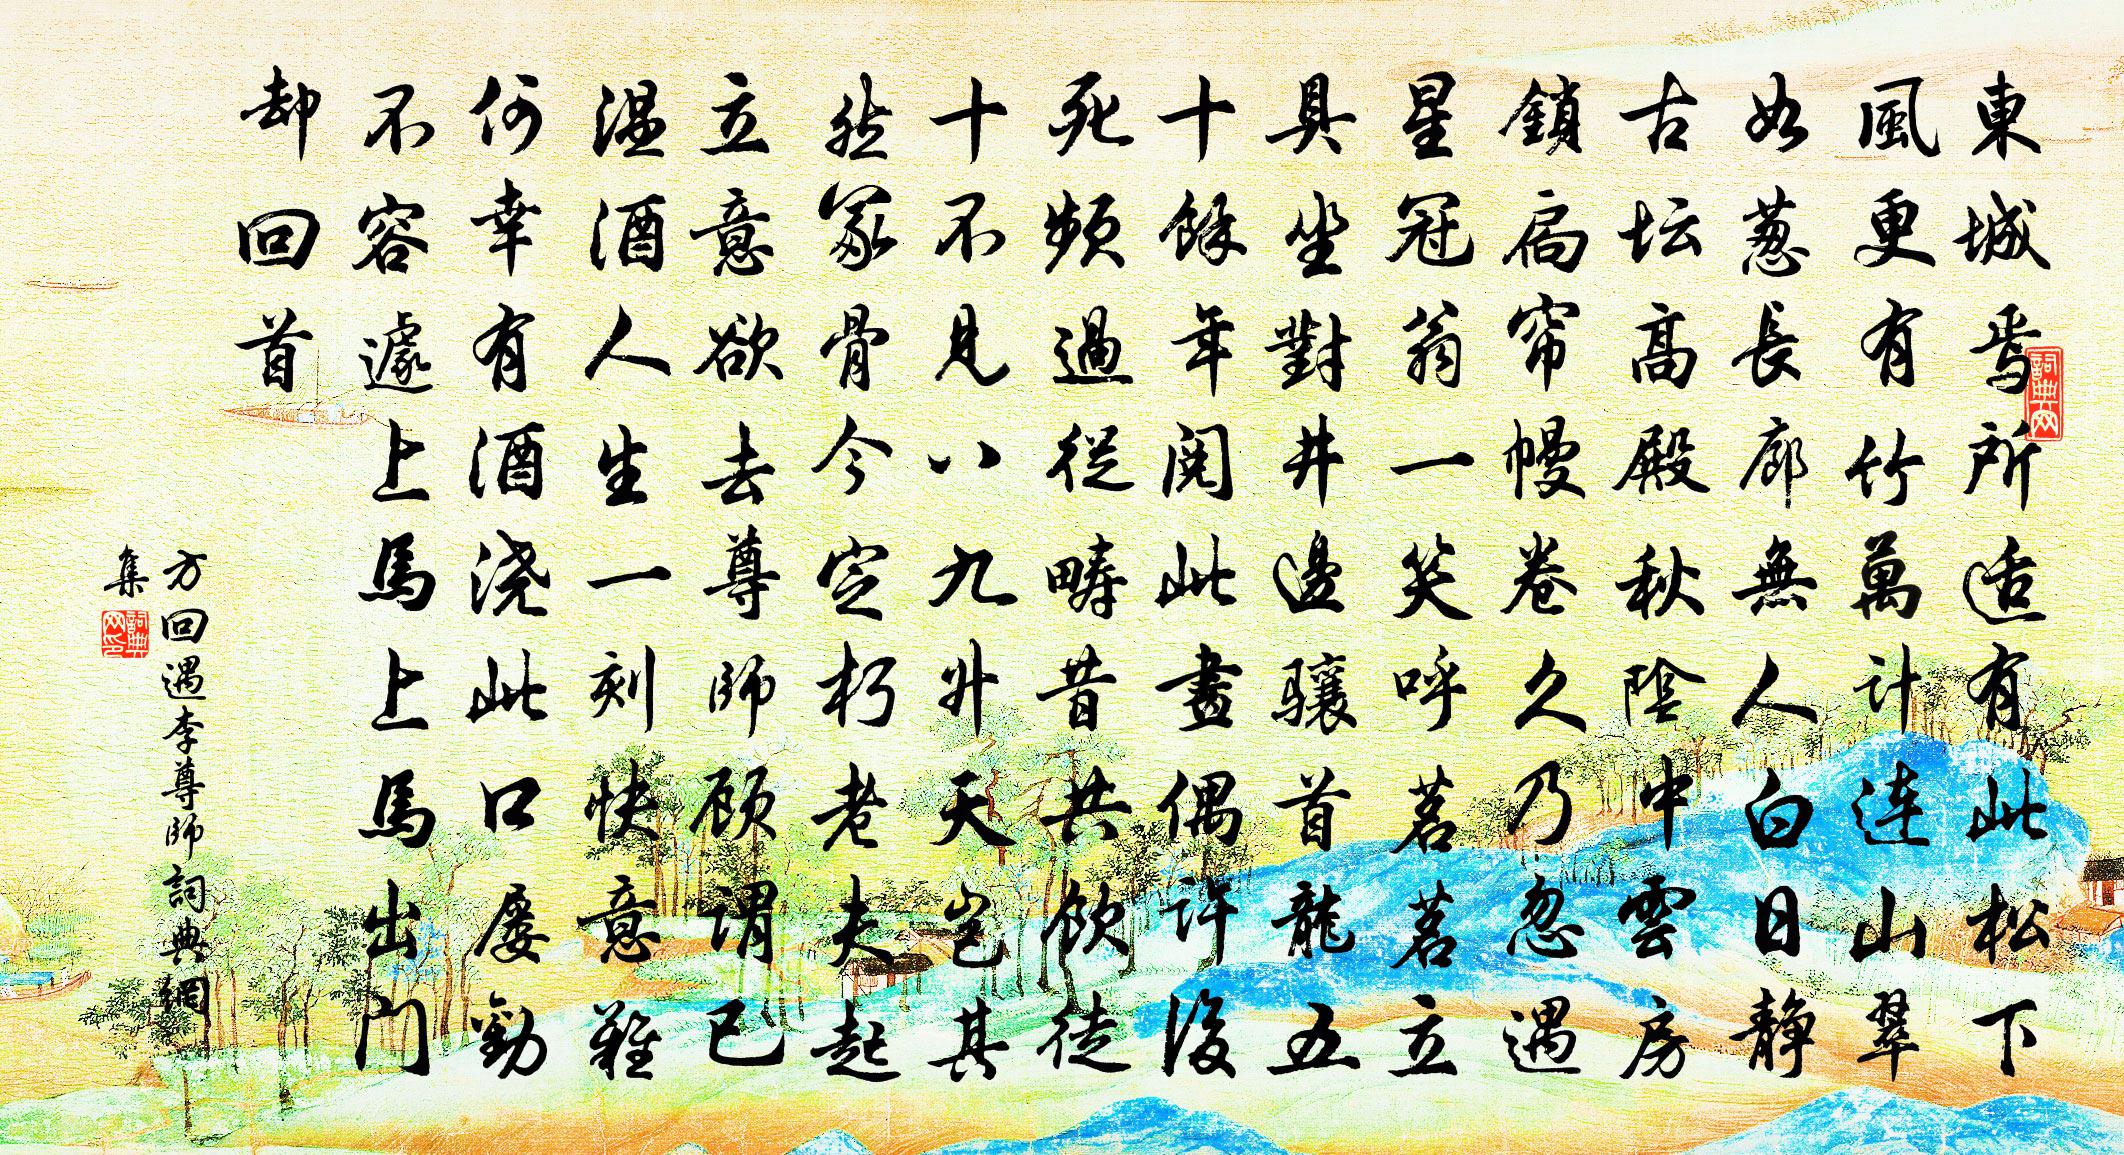 東城焉所适有此松下
風更有竹萬計連山翠
如葱長廊無人白日静
古坛高殿秋陰中雲房
鎖扃帘幔卷久乃忽遇
星冠翁一笑呼茗茗立
具坐對井邊驤首龍五
十餘年閱此畫偶许後
死频過從畴昔共飲徒
十不見八九升天岂其
然冢骨今定朽老夫起
立意欲去尊師顾謂已
温酒人生一刻快意難
何幸有酒浇此口屡勸
不容遽上馬上馬出門
却回首
方回遇李尊師詞典網
集
詞典网
詞典网印